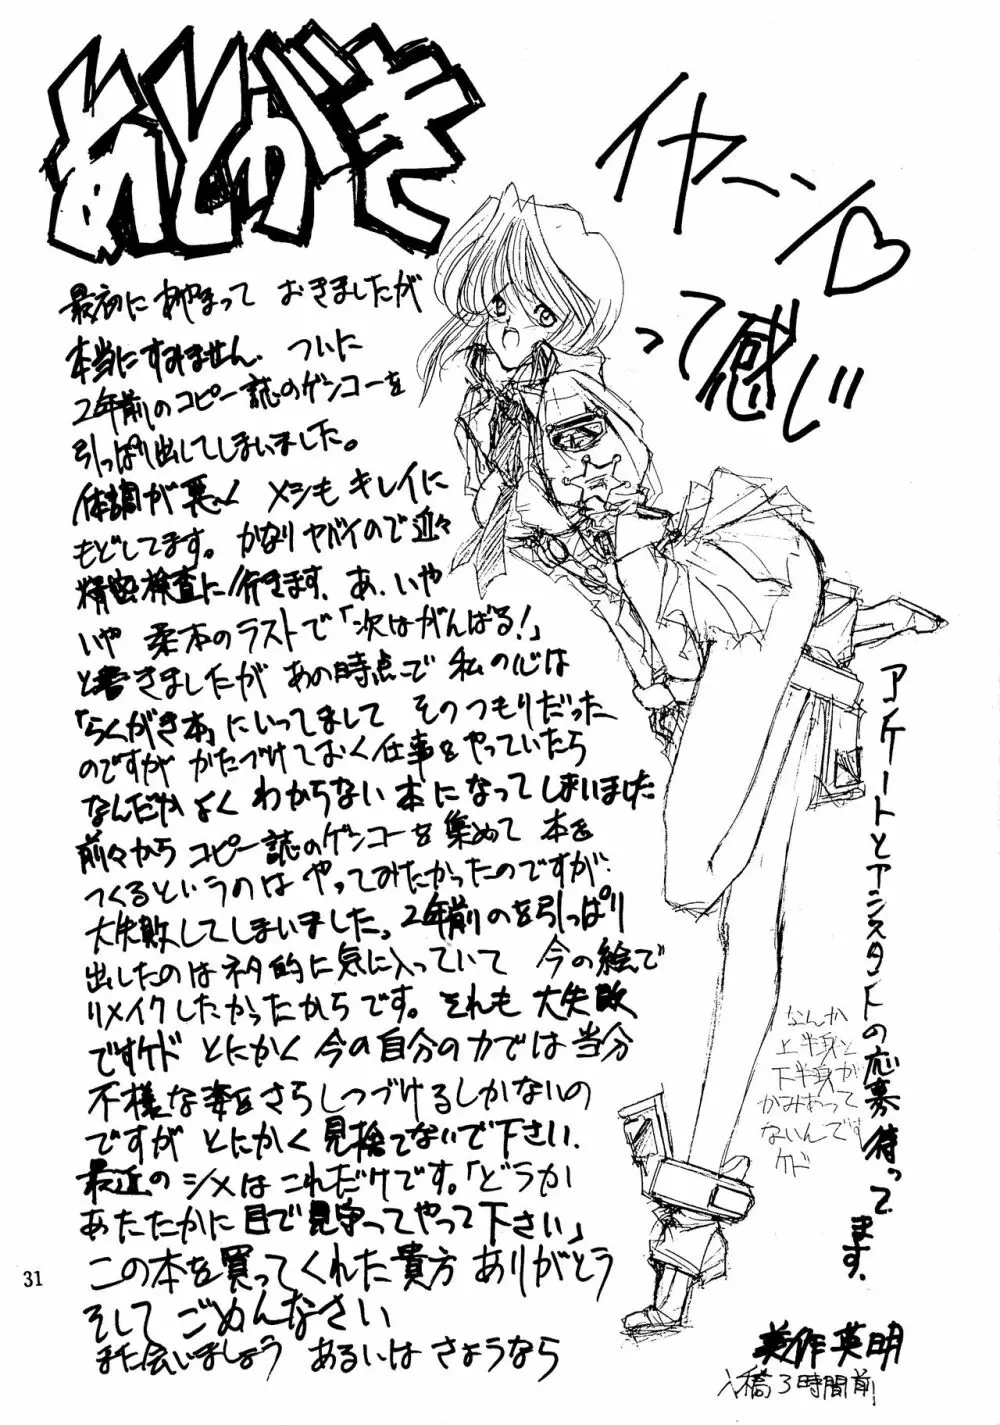 あとがき
イヤーン♡
って感じ
最初に あやまって おきましたが
本当にすみません. ついに
2年前のコピー誌のゲンコーを
引っぱり出してしまいました。
体調が悪く メシも キレイに
もどしてます。かなりヤバイので近々
精密検査に行きます. あ. いや
いや 柔本のラストで「次はがんばる!」
と書きましたが あの時点で 私の心は
「らくがき本」にいってまして そのつもりだった
のですが かたづけておく仕事をやっていたら
なんだか よく わからない 本になってしまいました
前々から コピー誌のゲンコーを集めて 本を
つくるというのは やってみたかったのですが.
大失敗してしまいました。2年前のを引っぱり
出したのはネタ的に気に入っていて 今の絵で
リメイクしたかったからです。それも 大失敗
ですケド とにかく 今の自分の力では当分
不様な姿をさらしつづけるしかないの
ですが とにかく 見捨てないで下さい.
最近の シメは これだけです。「どうか
あたたかに目で見守ってやって下さい」
この本を買ってくれた貴方 ありがとう
そして ごめんなさい
また会いましょう あるいは さようなら
アンケートとアシスタントの応募待ってます.
なんか
上半身と
下半身が
かみあって
ないんです
ケド
美作英明
入稿3時間前!
31